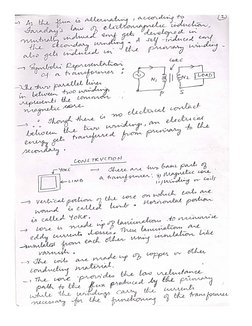 → As the flux is alternating, according to
Faraday's law of electromagnetic induction,
mutually induced emf gets developed in
the secondary winding. & self induced emf
also gets induced in the primary winding.
→ Symbolic Representation
of a transformer :
The two parallel lines
in between two windings
represent the common
magnetic core.
CORE
N₁
N₂
LOAD
P
S
→ Though there is no electrical contact
between the two windings, an electrical
energy gets transferred from primary to the
secondary.
CONSTRUCTION
YOKE
LIMB
→ There are two basic parts of
a transformer: i) Magnetic core
ii) Winding or coils
→ Vertical portion of the core on which coils are
wound is called limb. Horizontal portion
is called yoke.
→ Core is made up of laminations to minimise
eddy currents losses. These lamination are
insulated from each other using insulation like
varnish.
→ The coils are made up of copper or other
conducting material.
→ The core provides the low reluctance
path to the flux produced by the primary
while the windings carry the currents
necessary for the functioning of the transformer